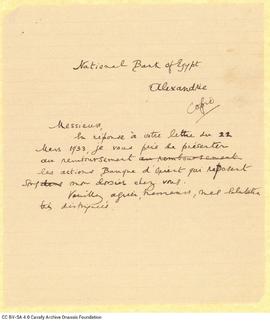 National Bank of Egypt
Alexandrie
Copie
Messieurs,
En réponse à votre lettre du 22
Mars 1933, je vous prie de présenter
au remboursement au remboursement
les actions Banque d'Orient qui reposent
sous dans mon dossier chez vous.
Veuillez agréer, Messieurs, mes salutations
très distinguées.
CC BY-SA 4.0 Cavafy Archive Onassis Foundation